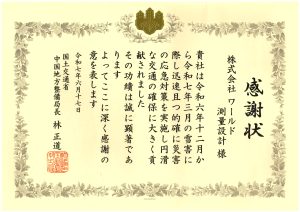 感謝状
株式会社 ワールド
測量設計 様
貴社は令和六年十二月か
ら令和七年三月の雪害に
際し迅速且つ的確に災害
の応急対策を実施し円滑
な交通の確保に大きく貢
献されました
その功績は誠に顕著であ
ります
よってここに深く感謝の
意を表します
令和七年六月十七日
国土交通省
中国地方整備局長 林 正道